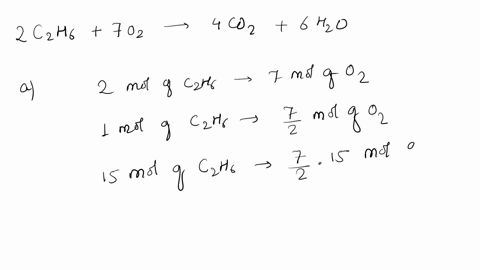 2 C2H6 + 7 O2 → 4 CO2 + 6 H2O
a) 2 mol of C2H6 → 7 mol of O2
1 mol of C2H6 → 7/2 mol of O2
15 mol of C2H6 → 7/2 . 15 mol